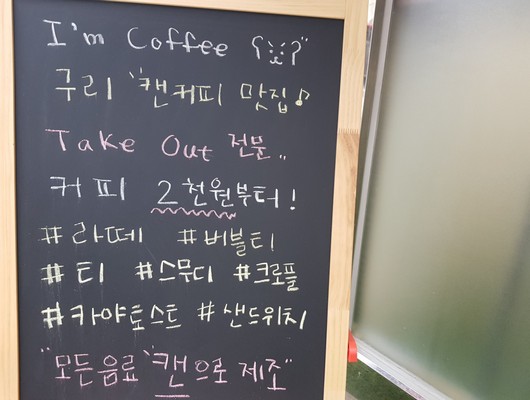 I'm Coffee ʕ·͡·ʔ"
구리 "캔커피 맛집♪
Take Out 전문..
커피 2천원부터!
#라떼 #버블티!
#티 #스무디 #크로플
#카야토스트 #샌드위치
"모든음료 "캔으로 제조"